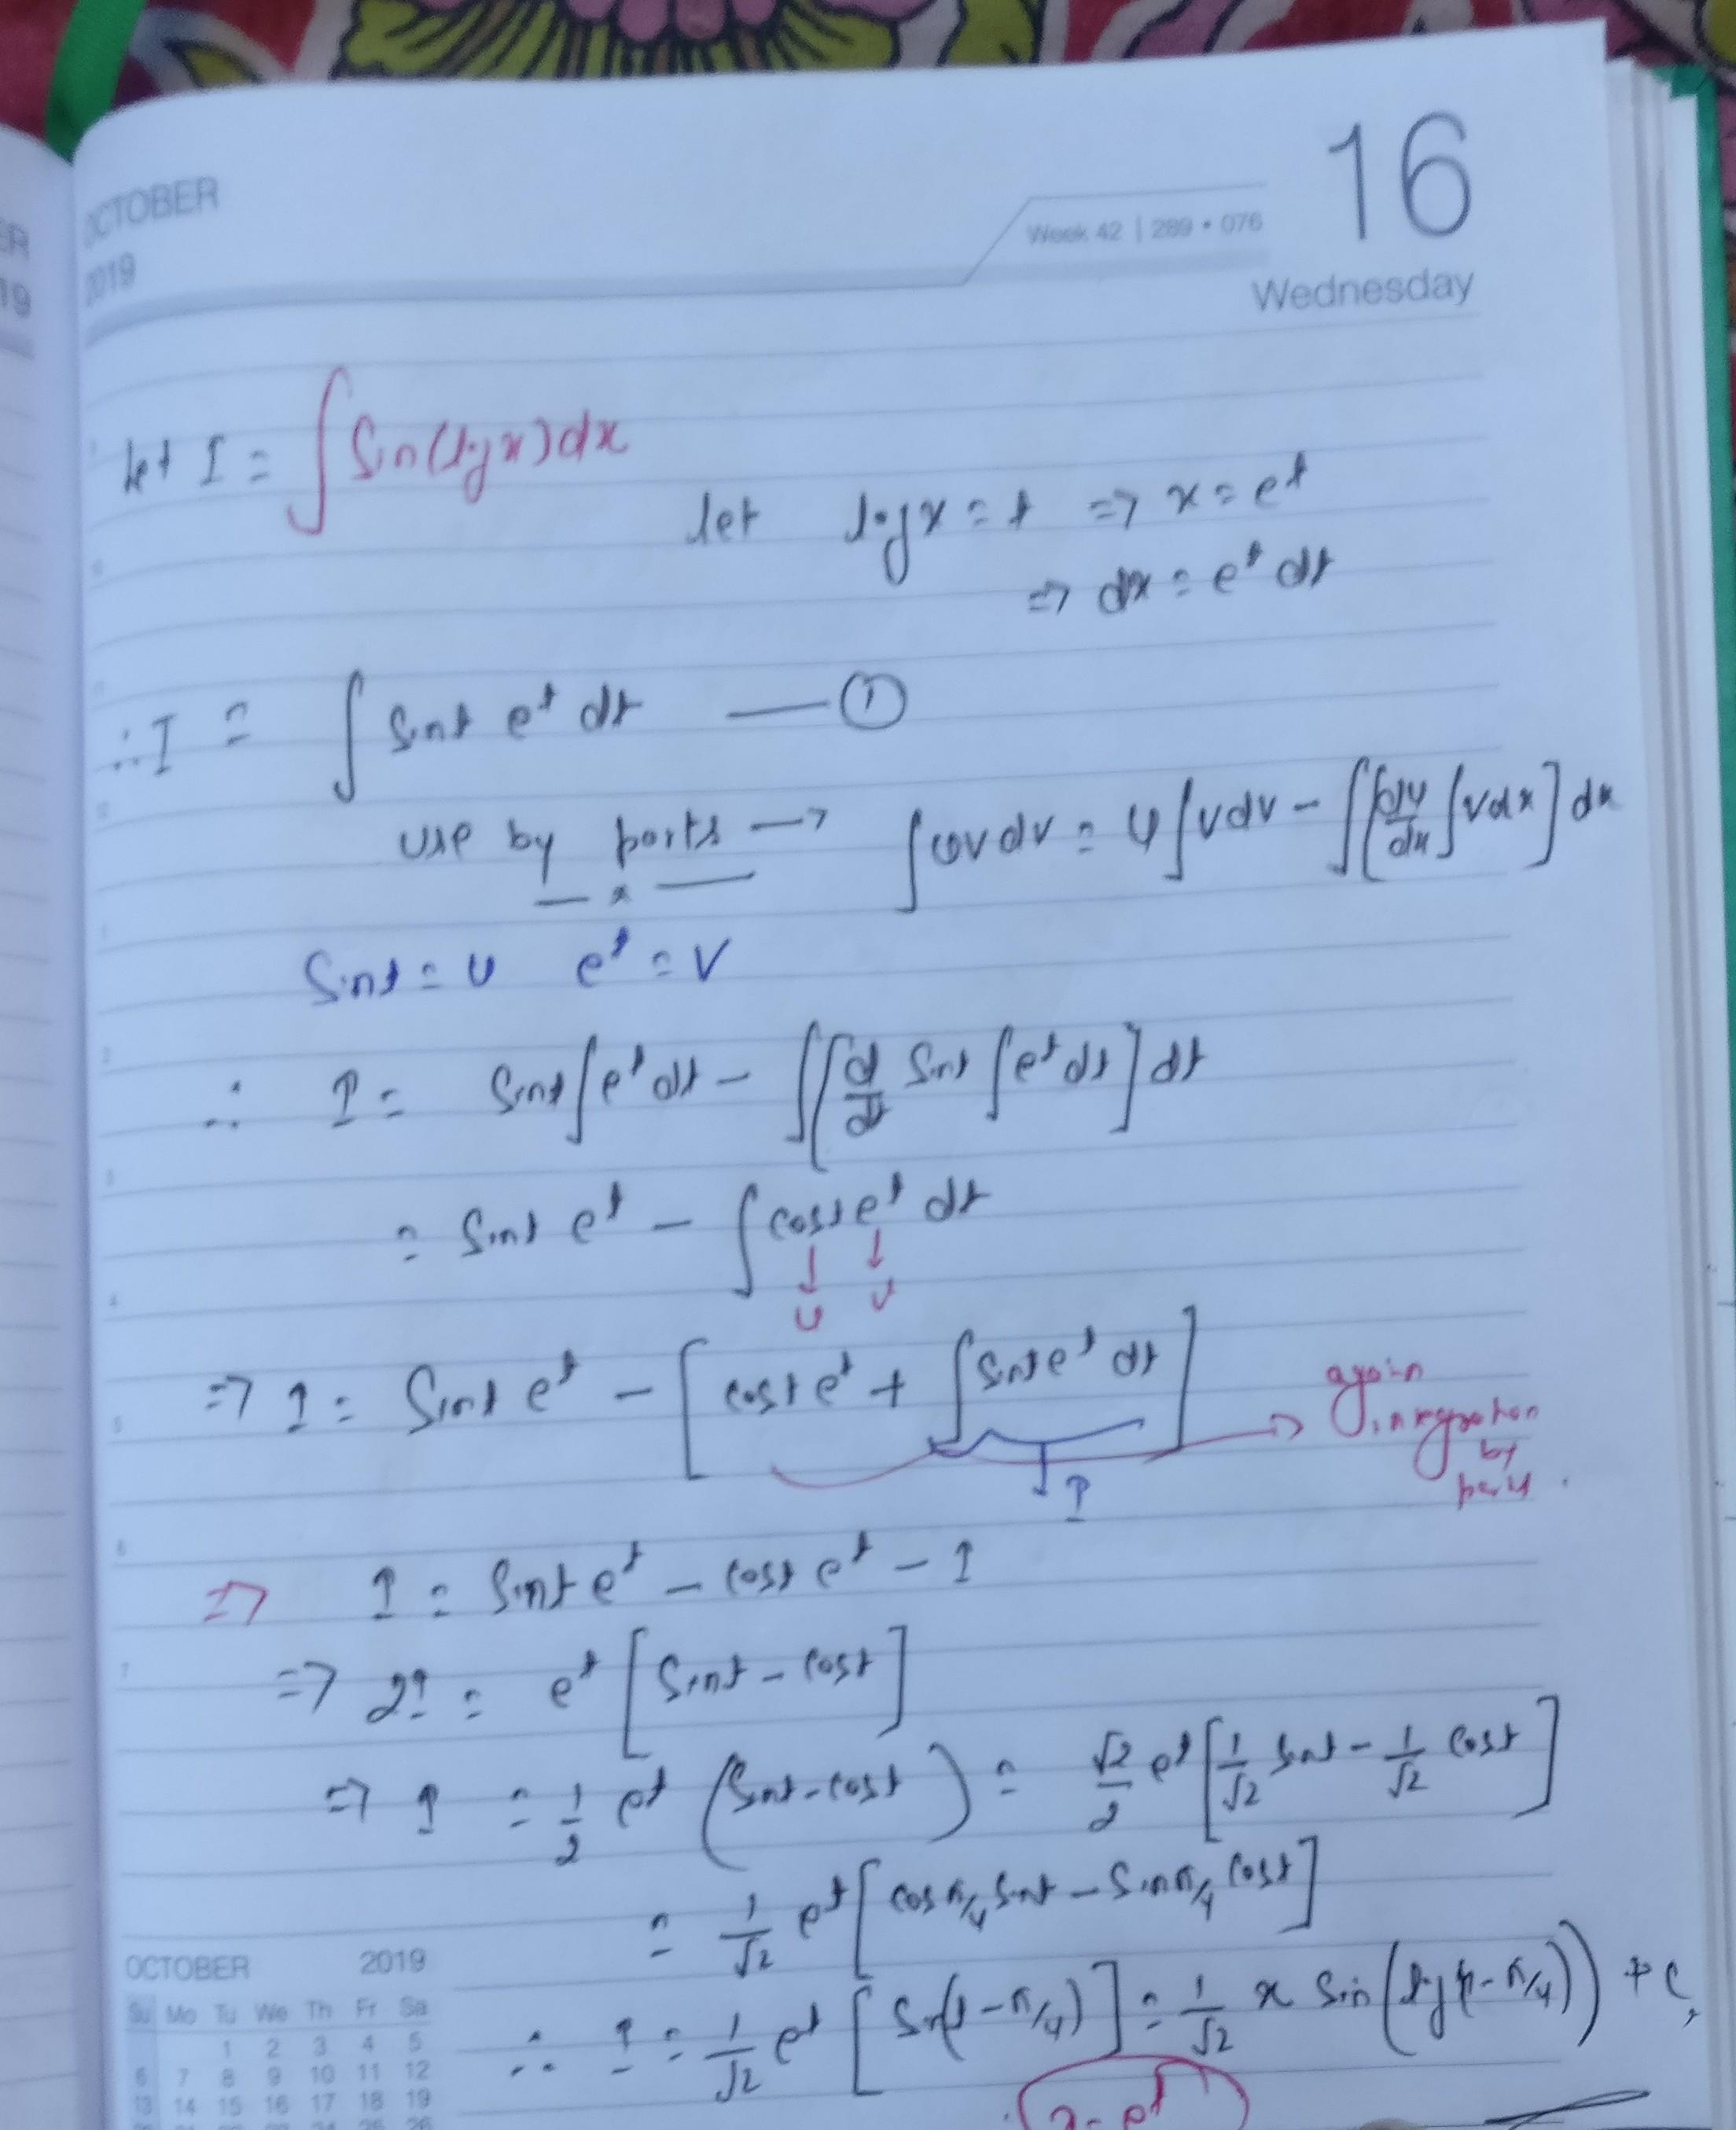 OCTOBER
2019
Week 42 | 289 • 076
16
Wednesday
let I = ∫ Sin(logx)dx
let logx = t ⇒ x = e^t
⇒ dx = e^t dt
∴ I = ∫ Sint e^t dt — ①
use by parts → ∫uvdv = u∫vdv - ∫[du/dx ∫vdx] dx
Sint = u e^t = v
∴ I = Sint ∫e^t dt - ∫[d/dt Sint ∫e^t dt] dt
= Sint e^t - ∫ cost e^t dt
↓ ↓
u v
⇒ I = Sint e^t - [cost e^t + ∫ Sint e^t dt] → again
integration
by
parts.
I
⇒ I = Sint e^t - cost e^t - I
⇒ 2I = e^t [Sint - cost]
⇒ I = 1/2 e^t (Sint - cost) = √2/2 e^t [1/√2 Sint - 1/√2 cost]
= 1/√2 e^t [cos π/4 Sint - Sin π/4 cost]
∴ I = 1/√2 e^t [Sin(t - π/4)] = 1/√2 x Sin(log(x - π/4)) + C,
x = e^t
OCTOBER 2019
Su Mo Tu We Th Fr Sa
1 2 3 4 5
6 7 8 9 10 11 12
13 14 15 16 17 18 19